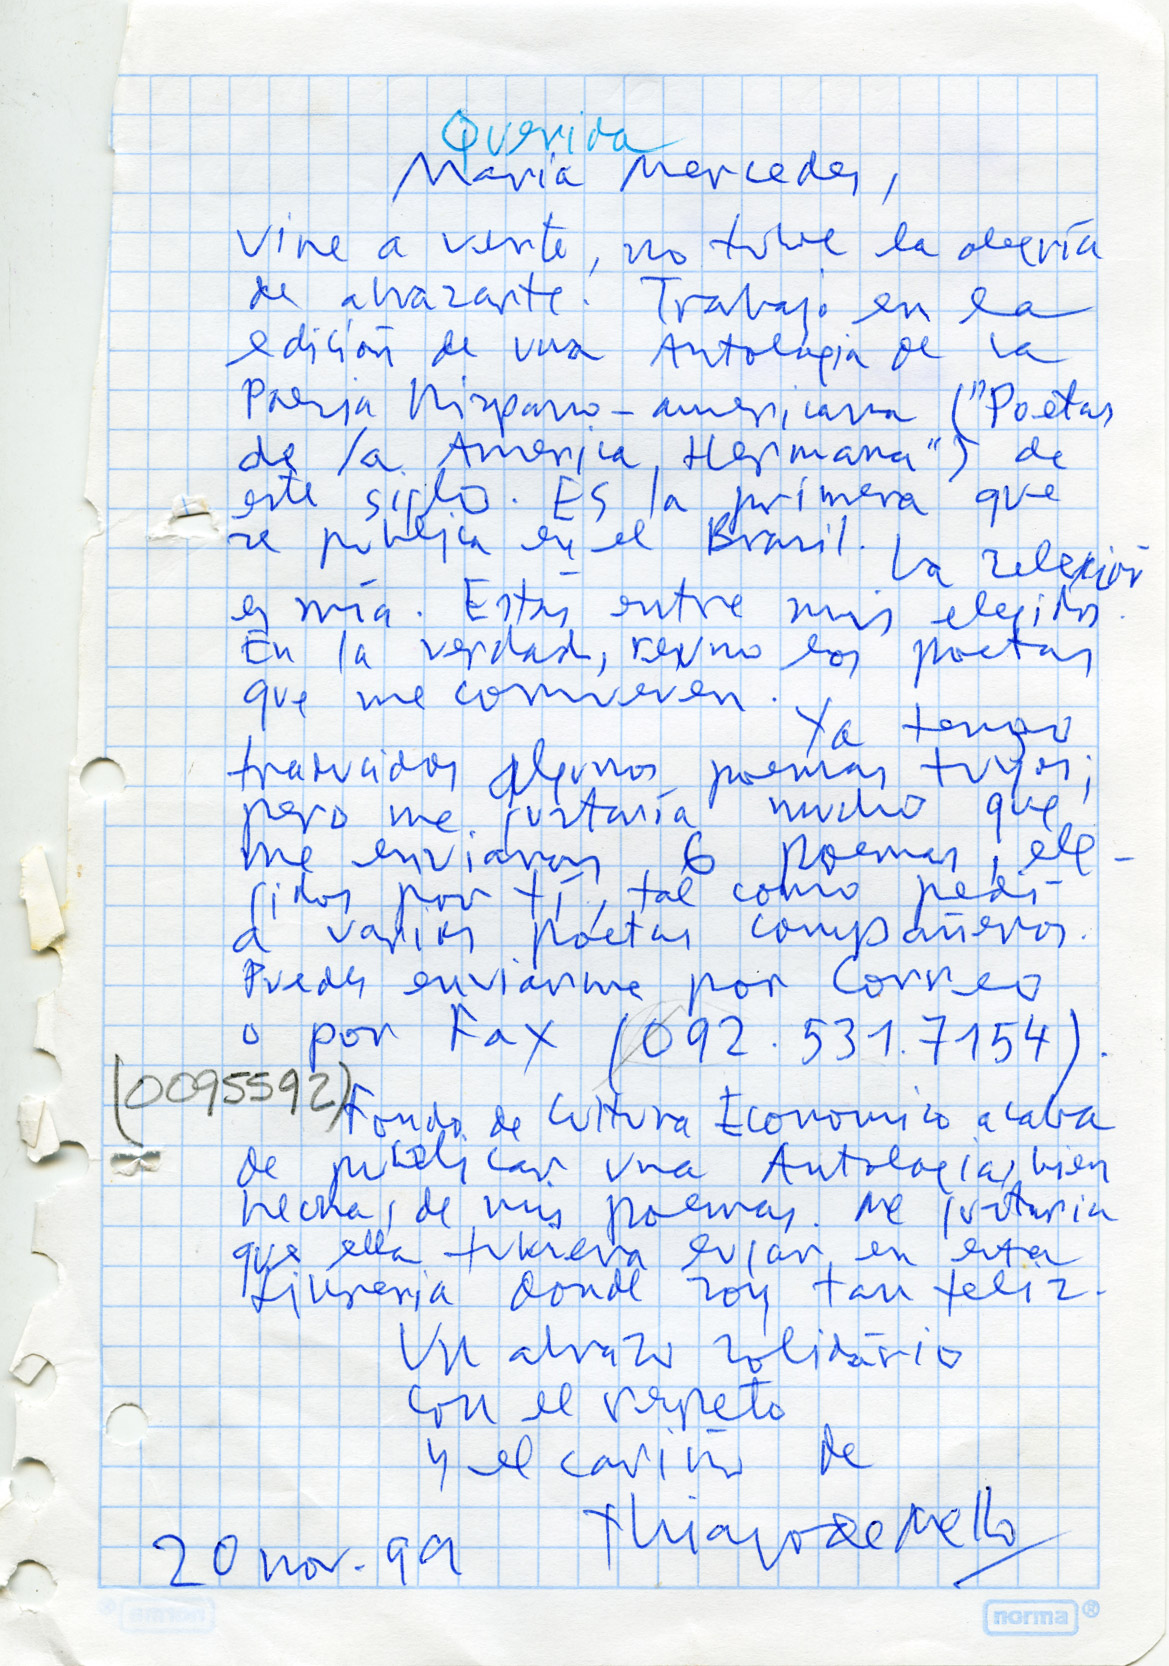 Querida
María Mercedes,
vine a verte, no tube la alegría
de abrazarte. Trabajo en la
edición de una Antologia de la
Poesia Hispano-americana ("Poetas
de la America Hermana") de
este siglo. Es la primera que
se publica en el Brasil. La selección
es mía. Estás entre mis elegidos.
En la verdad, reuno los poetas
que me conmueven. Ya tengo
traducidos algunos poemas tuyos;
pero me gustaría mucho que
me enviaras 6 poemas, ele-
gidos por ti, tal como pedi
a varios poetas compañeros.
Puedes enviarme por Correo
o por Fax (092.531.7154).
(0095592)
Fondo de Cultura Economico acaba
de publicar una Antologia, bien
hecha, de mis poemas. Me gustaria
que ella tubiera lugar en esta
Libreria donde soy tan feliz.
Un abrazo solidário
con el respeto
y el cariño de
Thiago de Mello
20 nov. 99
norma®